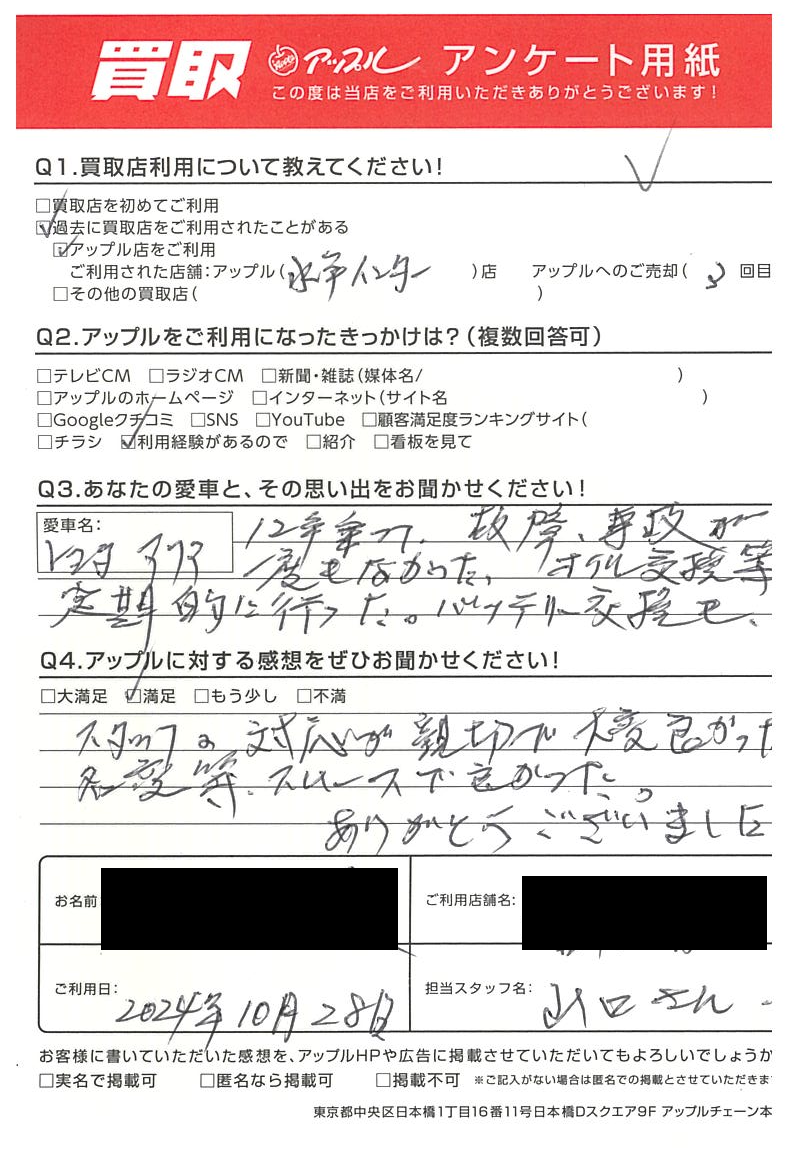 買取 アップル アンケート用紙
この度は当店をご利用いただきありがとうございます!
Q1.買取店利用について教えてください!
□買取店を初めてご利用
☑過去に買取店をご利用されたことがある
☑アップル店をご利用
ご利用された店舗:アップル( インター )店 アップルへのご売却( 3 回目
□その他の買取店( )
Q2.アップルをご利用になったきっかけは?(複数回答可)
□テレビCM □ラジオCM □新聞・雑誌(媒体名/ )
□アップルのホームページ □インターネット(サイト名 )
□Googleクチコミ □SNS □YouTube □顧客満足度ランキングサイト(
□チラシ ☑利用経験があるので □紹介 □看板を見て
Q3.あなたの愛車と、その思い出をお聞かせください!
愛車名:
トヨタ アクア 12年乗って、故障、事故が
一度もなかった、オイル交換等
定期的に行った。バッテリー交換も、
Q4.アップルに対する感想をぜひお聞かせください!
□大満足 ☑満足 □もう少し □不満
スタッフの対応が親切で大変良かった
名変等、スムースで良かった。
ありがとうございました
お名前 ご利用店舗名:
ご利用日: 2024年10月28日 担当スタッフ名: 山口さん
お客様に書いていただいた感想を、アップルHPや広告に掲載させていただいてもよろしいでしょうか
□実名で掲載可 □匿名なら掲載可 □掲載不可 ※ご記入がない場合は匿名での掲載とさせていただきま
東京都中央区日本橋1丁目16番11号日本橋Dスクエア9F アップルチェーン本